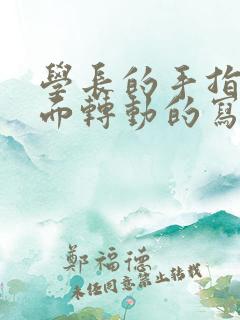 學長的手指
而轉動的寫
鄭福德
未经同意禁止转载